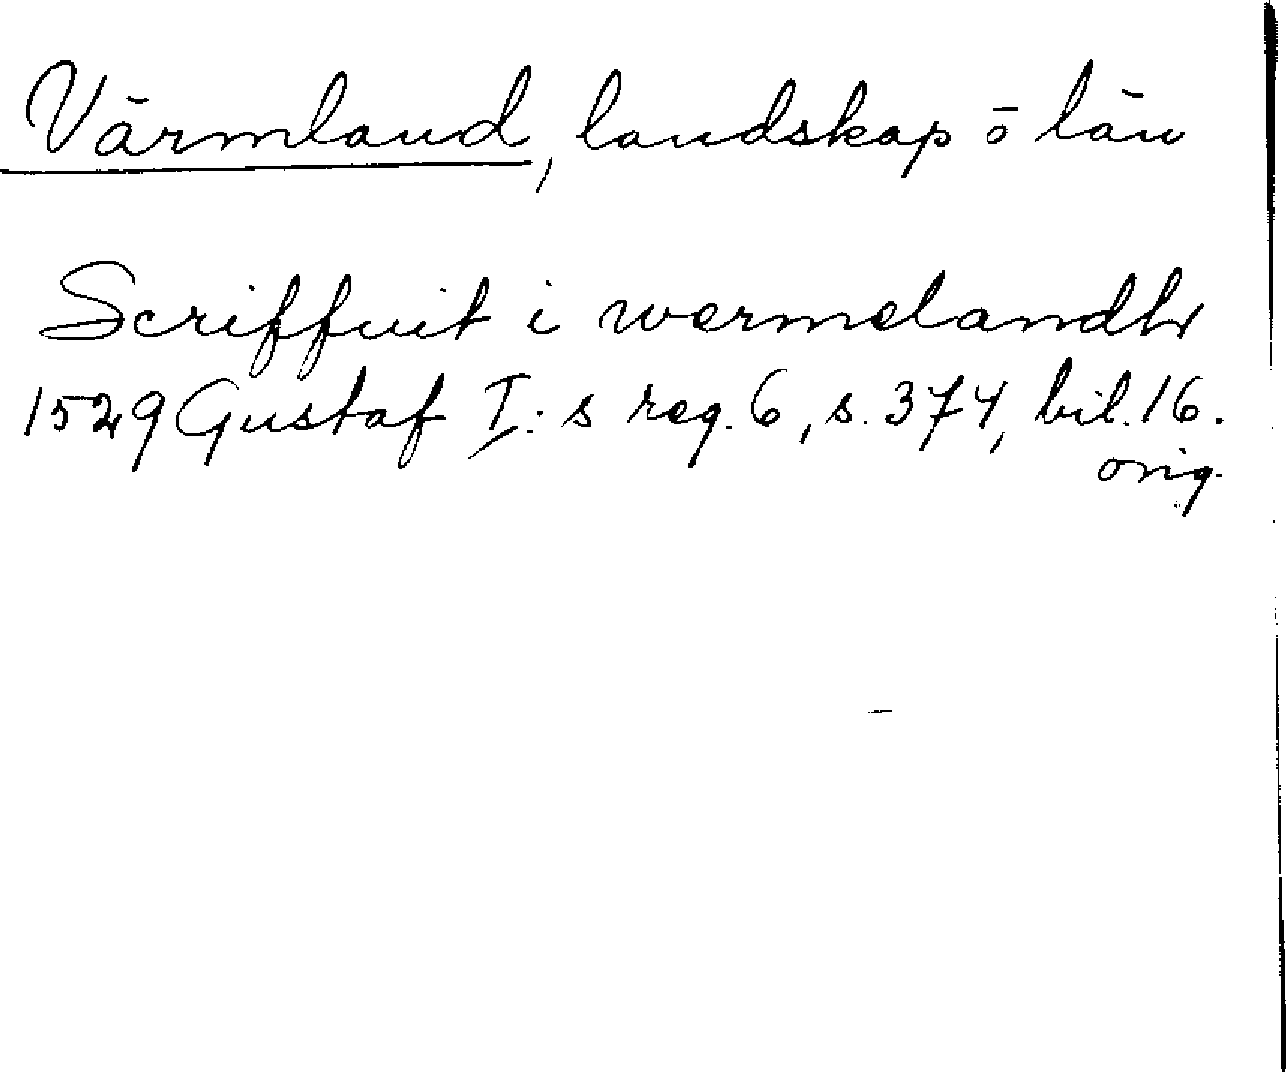 Värmland, landskap ō län
Scriffuit i wermelandh
1529 Gustaf I:s reg. 6, s. 374, bil. 16.
orig.